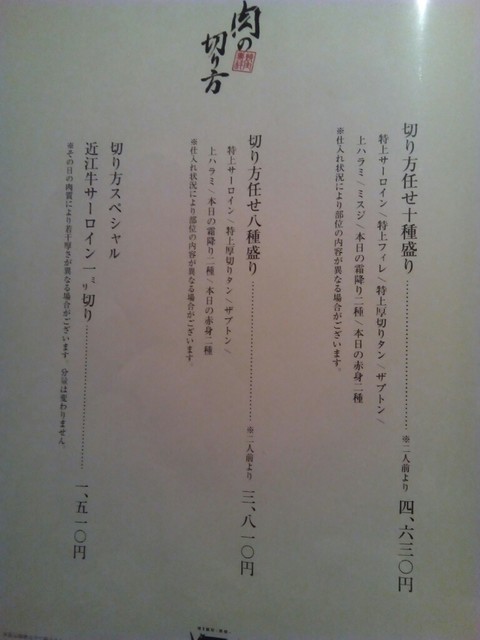 肉の
切り方
切り方任せ十種盛り ※二人前より 四、六三〇円
特上サーロイン／特上フィレ／特上厚切りタン／ザブトン／
上ハラミ／ミスジ／本日の霜降り二種／本日の赤身二種
※仕入れ状況により部位の内容が異なる場合がございます。
切り方任せ八種盛り ※二人前より 三、八一〇円
特上サーロイン／特上厚切りタン／ザブトン／
上ハラミ／本日の霜降り二種／本日の赤身二種
※仕入れ状況により部位の内容が異なる場合がございます。
切り方スペシャル
近江牛サーロイン一ミリ切り 一、五一〇円
※その日の肉質により若干厚さが異なる場合がございます。分量は変わりません。